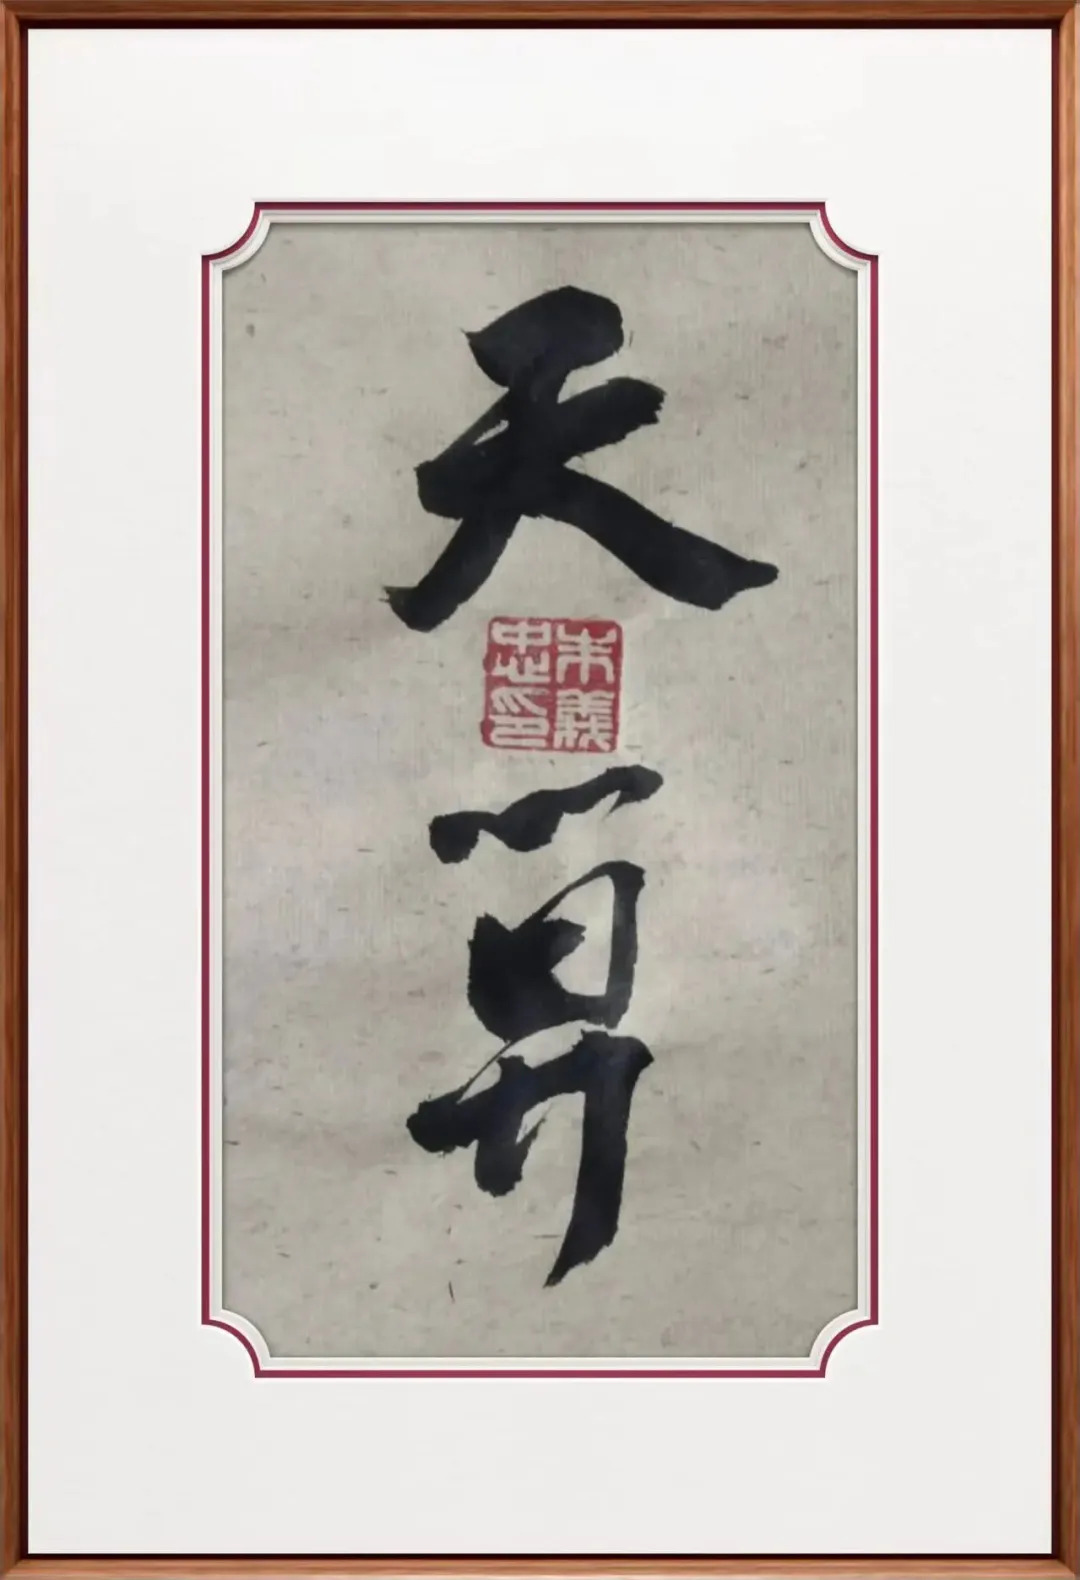 天算
朱義
忠印